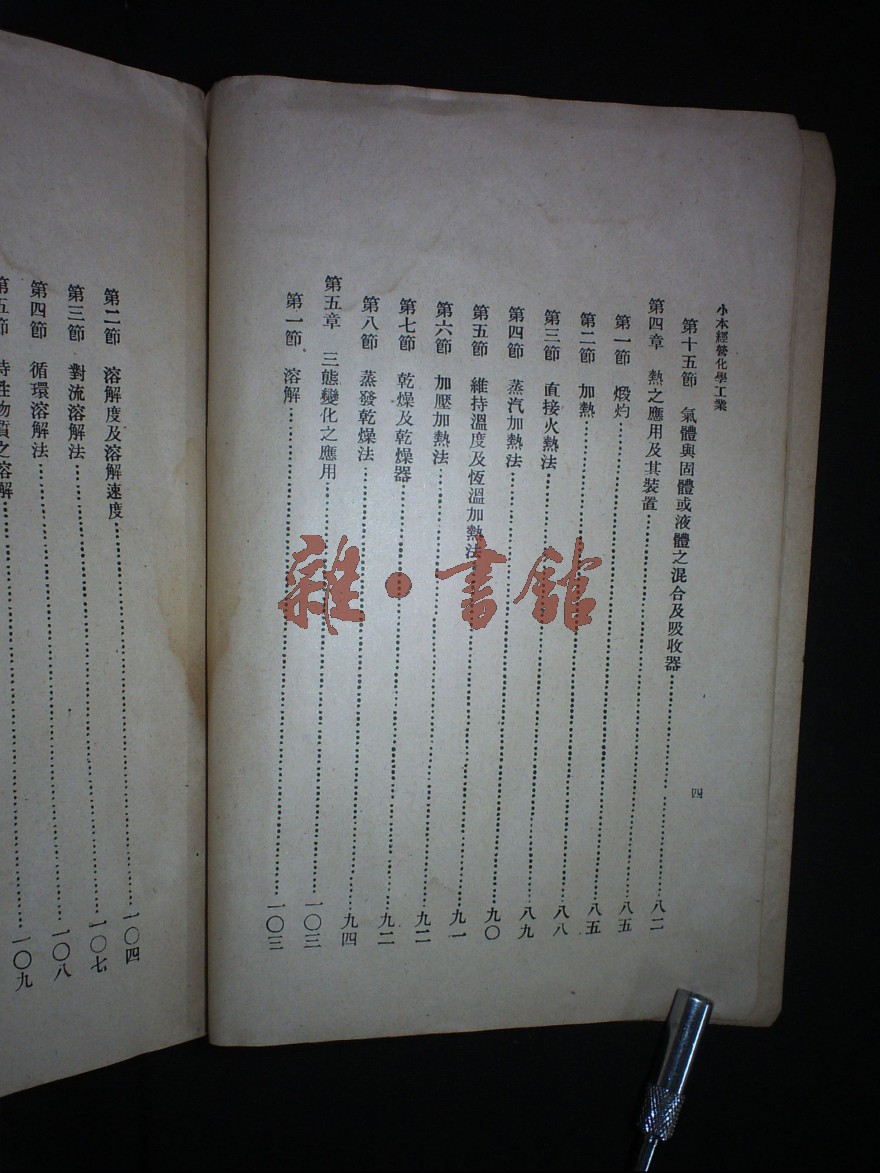 小本經營化學工業
四
第十五節 氣體與固體或液體之混合及吸收器……八二
第四章 熱之應用及其裝置……八五
第一節 煅灼……八五
第二節 加熱……八八
第三節 直接火熱法……八九
第四節 蒸汽加熱法……九〇
第五節 維持溫度及恆溫加熱法……九一
第六節 加壓加熱法……九二
第七節 乾燥及乾燥器……九二
第八節 蒸發乾燥法……九四
第五章 三態變化之應用……一〇三
第一節 溶解……一〇三
第二節 溶解度及溶解速度……一〇四
第三節 對流溶解法……一〇七
第四節 循環溶解法……一〇八
第五節 特性物質之溶解……一〇九
雜·書館